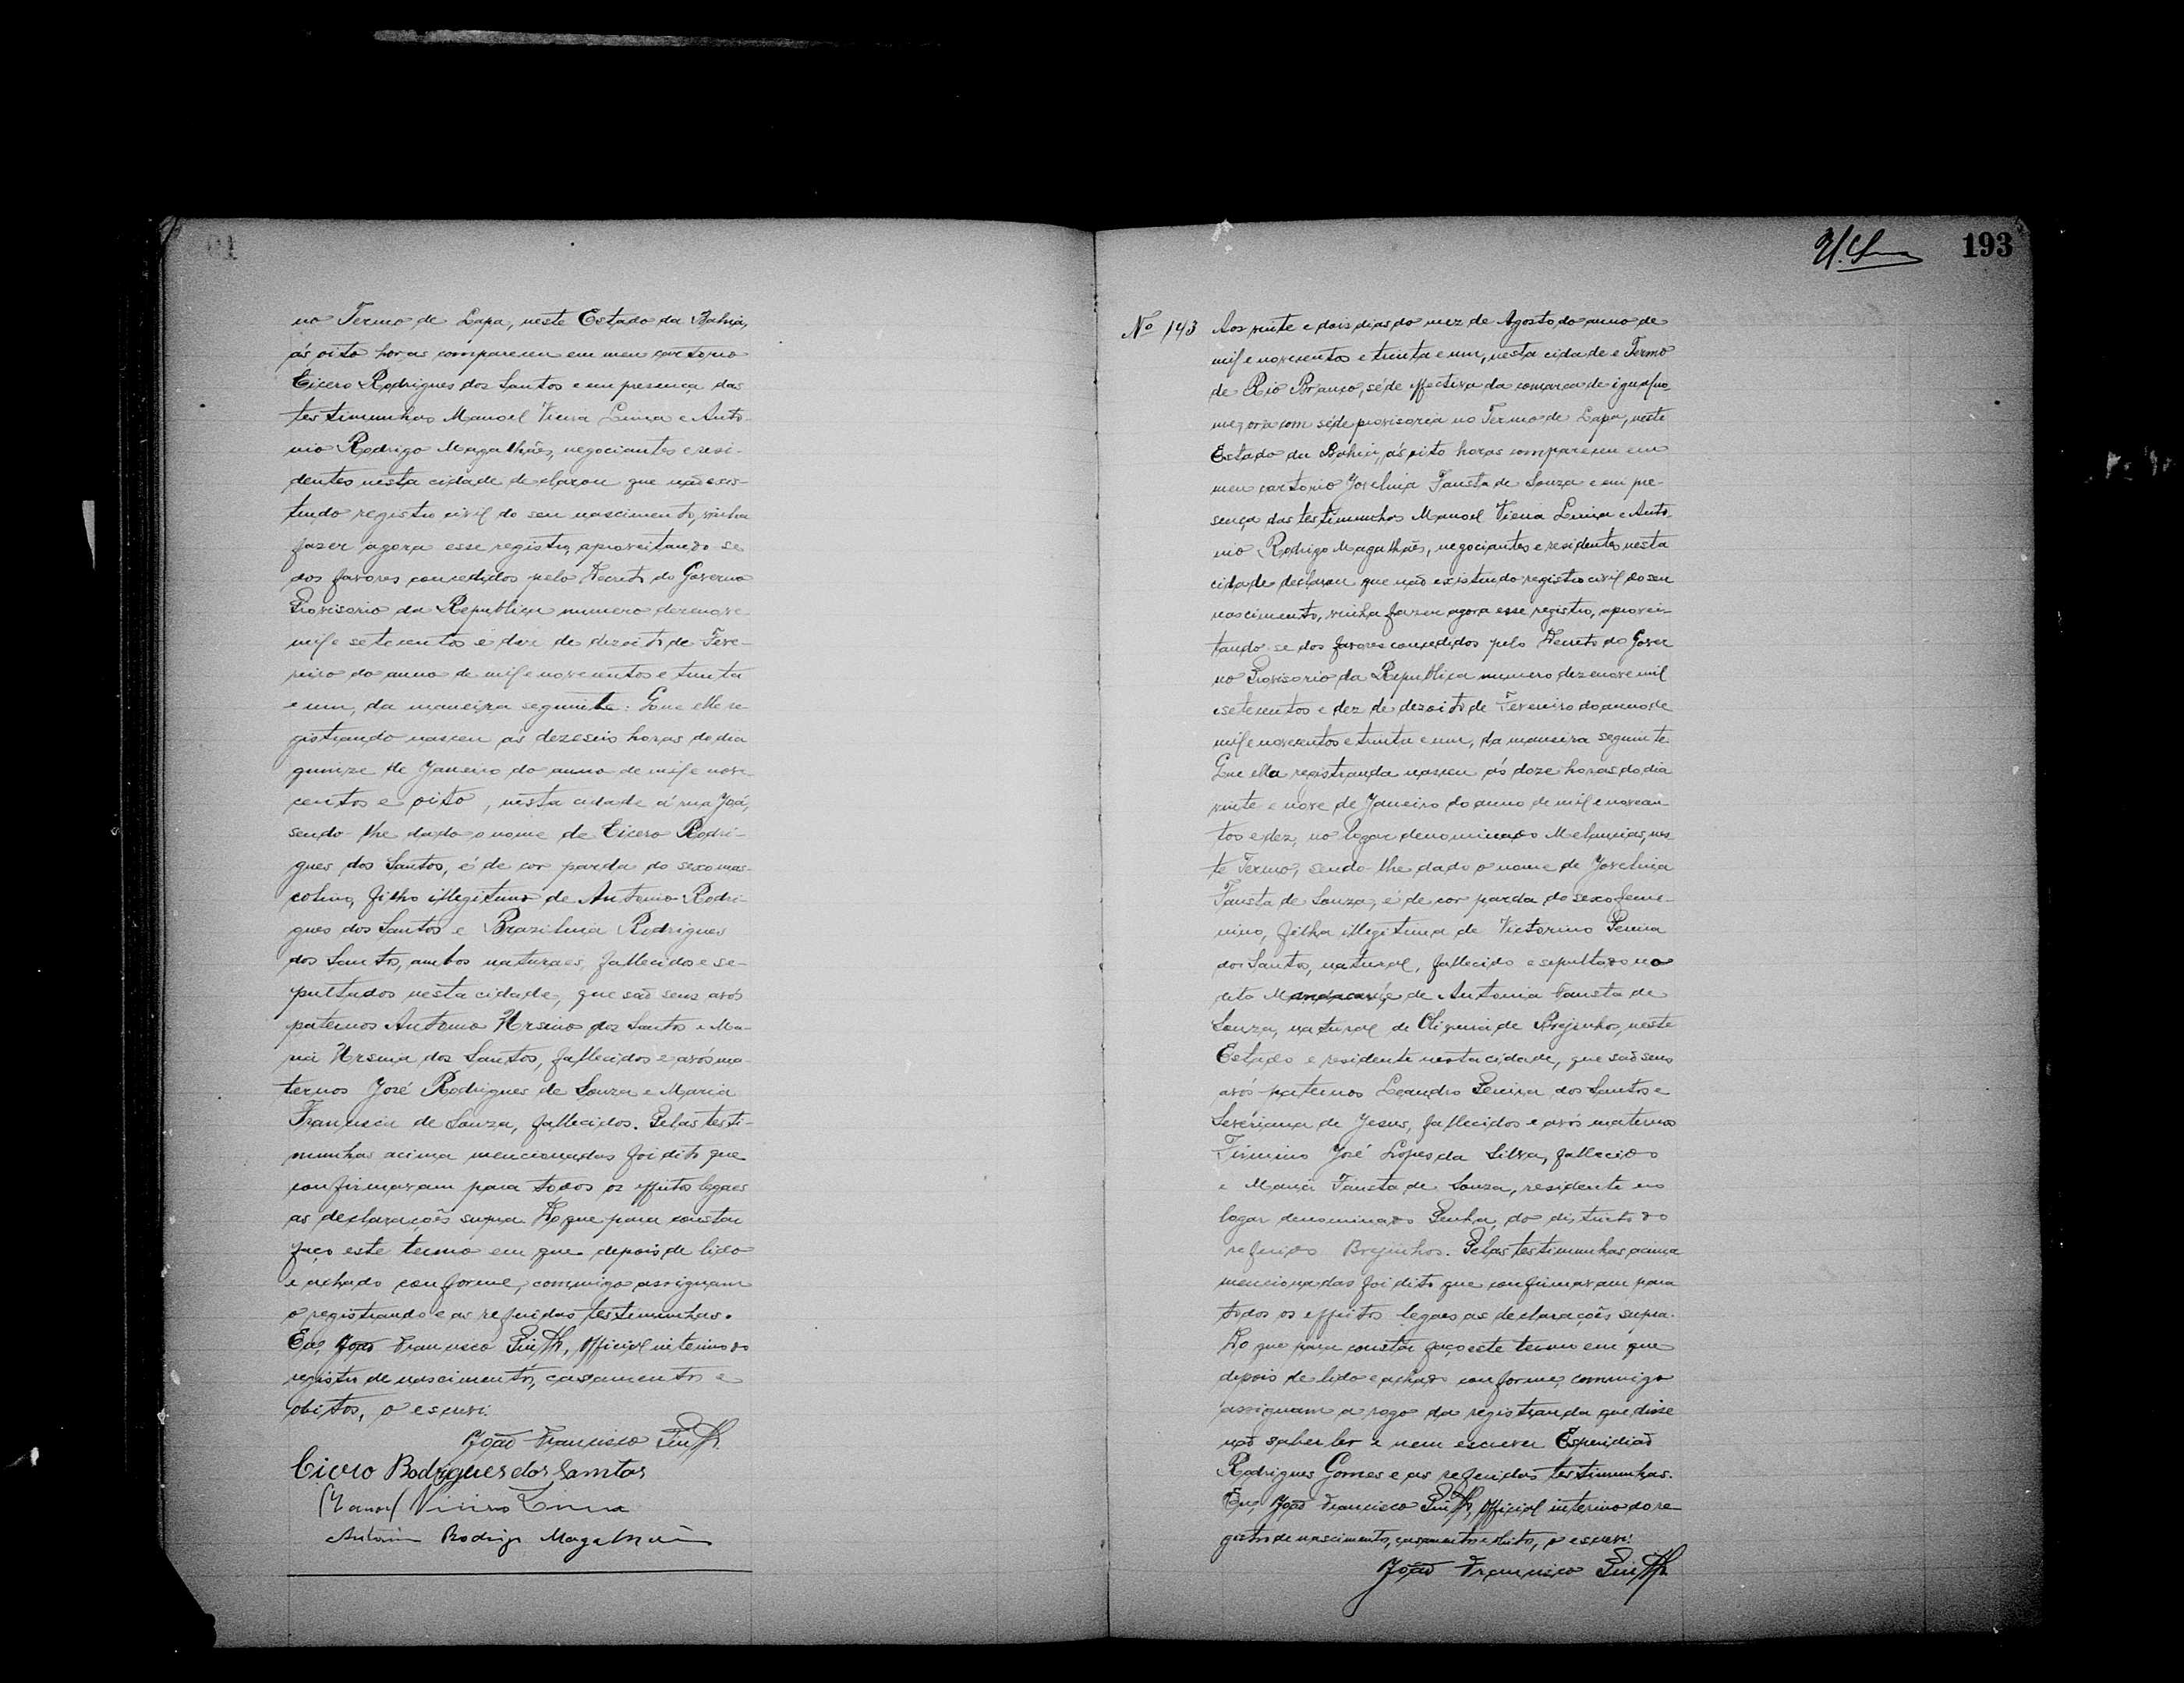 no Termo de Lapa, neste Estado da Bahia,
ás oito horas compareceu em meu cartorio
Cicero Rodrigues dos Santos e em presença das
testimunhas Manoel Vieira Lima e Anto-
nio Rodrigo Magalhães, negociantes e resi-
dentes nesta cidade declarou que não exis-
tindo registro civil do seu nascimento, vinha
fazer agora esse registro, aproveitando-se
dos favores concedidos pelo Decreto do Governo
Provisorio da Republica numero dezenove
mil e setecentos e dez de dezoito de Feve-
reiro do anno de mil e novecentos e trinta
e um, da maneira seguinte: Que elle re-
gistrando nasceu ás dezeseis horas do dia
quinze de Janeiro do anno de mil e nove-
centos e oito, nesta cidade á rua Joá,
sendo-lhe dado o nome de Cicero Rodri-
gues dos Santos, é de cor parda do sexo mas-
colino, filho illegitimo de Antonio Rodri-
gues dos Santos e Brazilina Rodrigues
dos Santos, ambos naturaes, fallecidos e se-
pultados nesta cidade, que são seus avós
paternos Antonio Ursino dos Santos e Ma-
ria Ursina dos Santos, fallecidos e avós ma-
ternos José Rodrigues de Souza e Maria
Francisca de Souza, fallecidos. Pelas testi-
munhas acima mencionadas foi dito que
confirmavam para todos os effeitos legaes
as declarações supra. Do que para constar
faço este termo em que depois de lido
e achado conforme, commigo assignam
o registrando e as referidas testimunhas.
Eu, João Francisco, Official interino do
registro de nascimentos, casamentos e
obitos, o escrevi.
João Francisco
Cicero Rodrigues dos Santos
Manoel Vieira Lima
Antonio Rodrigo Magalhães
193
No 143 Aos vinte e dois dias do mez de Agosto do anno de
mil e novecentos e trinta e um, nesta cidade e Termo
de Rio Branco, séde effectiva da comarca de igual no
me, ora com séde provisoria no Termo de Lapa, neste
Estado da Bahia, ás oito horas compareceu em
meu cartorio Jovelina Fausta de Souza e em pre-
sença das testimunhas Manoel Vieira Lima e Anto-
nio Rodrigo Magalhães, negociantes e residentes nesta
cidade declarou que não existindo registro civil do seu
nascimento, vinha fazer agora esse registro, aprovei-
tando-se dos favores concedidos pelo Decreto do Gover
no Provisorio da Republica numero dezenove mil
e setecentos e dez de dezoito de Fevereiro do anno de
mil e novecentos e trinta e um, da maneira seguinte
Que ella registranda nasceu ás doze horas do dia
vinte e nove de Janeiro do anno de mil e novecen-
tos e dez, no logar denominado Melancias, nes
te Termo, sendo-lhe dado o nome de Jovelina
Fausta de Souza, é de cor parda do sexo feme-
nino, filha illegitima de Victorino Pereira
dos Santos, natural, fallecido e sepultado no
dito Mandacarú, e de Antonia Fausta de
Souza, natural de Oliveira de Brejinhos, neste
Estado e residente nesta cidade, que são seus
avós-paternos Leandro Pereira dos Santos e
Severiana de Jesus, fallecidos e avós maternos
Firmino José Lopes da Silva, fallecido
e Maria Fausta de Souza, residente no
logar denominado Penha, do districto do
referido Brejinhos. Pelas testimunhas acima
mencionadas foi dito que confirmavam para
todos os effeitos legaes as declarações supra.
Do que para constar faço este termo em que
depois de lido e achado conforme, commigo
assignam a rogo da registranda que disse
não saber ler e nem escrever Esperidião
Rodrigues Gomes e as referidas testimunhas.
Eu, João Francisco, Official interino do re
gistro de nascimentos, casamentos e obitos, o escrevi.
João Francisco